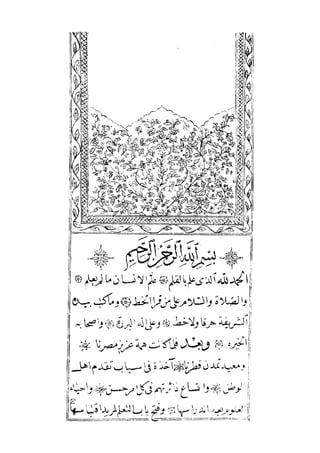 بسم الله الرحمن الرحيم
الحمد لله الذى علم بالقلم علم الانسان ما لم يعلم
والصلاة والسلام على من قرا الخط وما كتب بيده
الشريفة حرفا ولا خط وعلى اله البررة واصحابه
الخيره وبعد فلما كانت همة عزيز مصرنا
ومعيد تمدن قطرنا آخذة فى اسباب تقدم اهل
الوطن واتساع دائرتهم فى كل امر حسن واحياء
العلوم بعد اندراسها وفتح باب التعلم لمريد اقتباسها